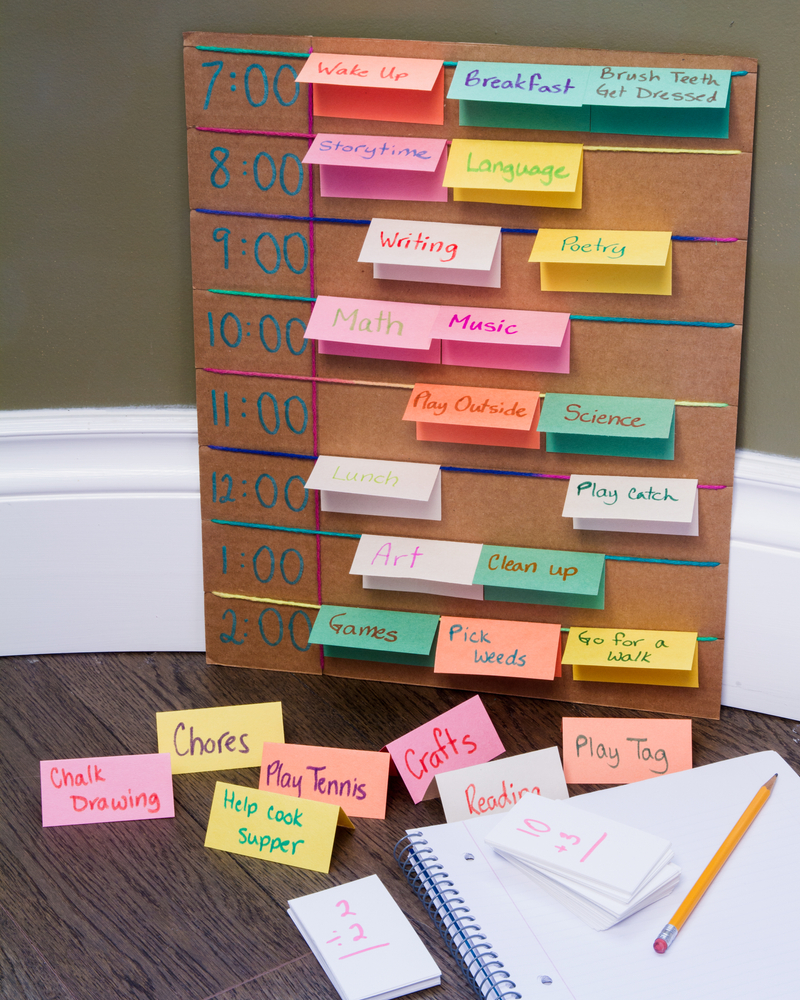 7:00
Wake Up
Breakfast
Brush Teeth
Get Dressed
8:00
Storytime
Language
9:00
Writing
Poetry
10:00
Math
Music
11:00
Play Outside
Science
12:00
Lunch
Play catch
1:00
Art
Clean up
2:00
Games
Pick
Weeds
Go for a
Walk
Chores
Crafts
Play Tag
Chalk
Drawing
Play Tennis
Reading
Help cook
Supper
10
+3
2
÷2